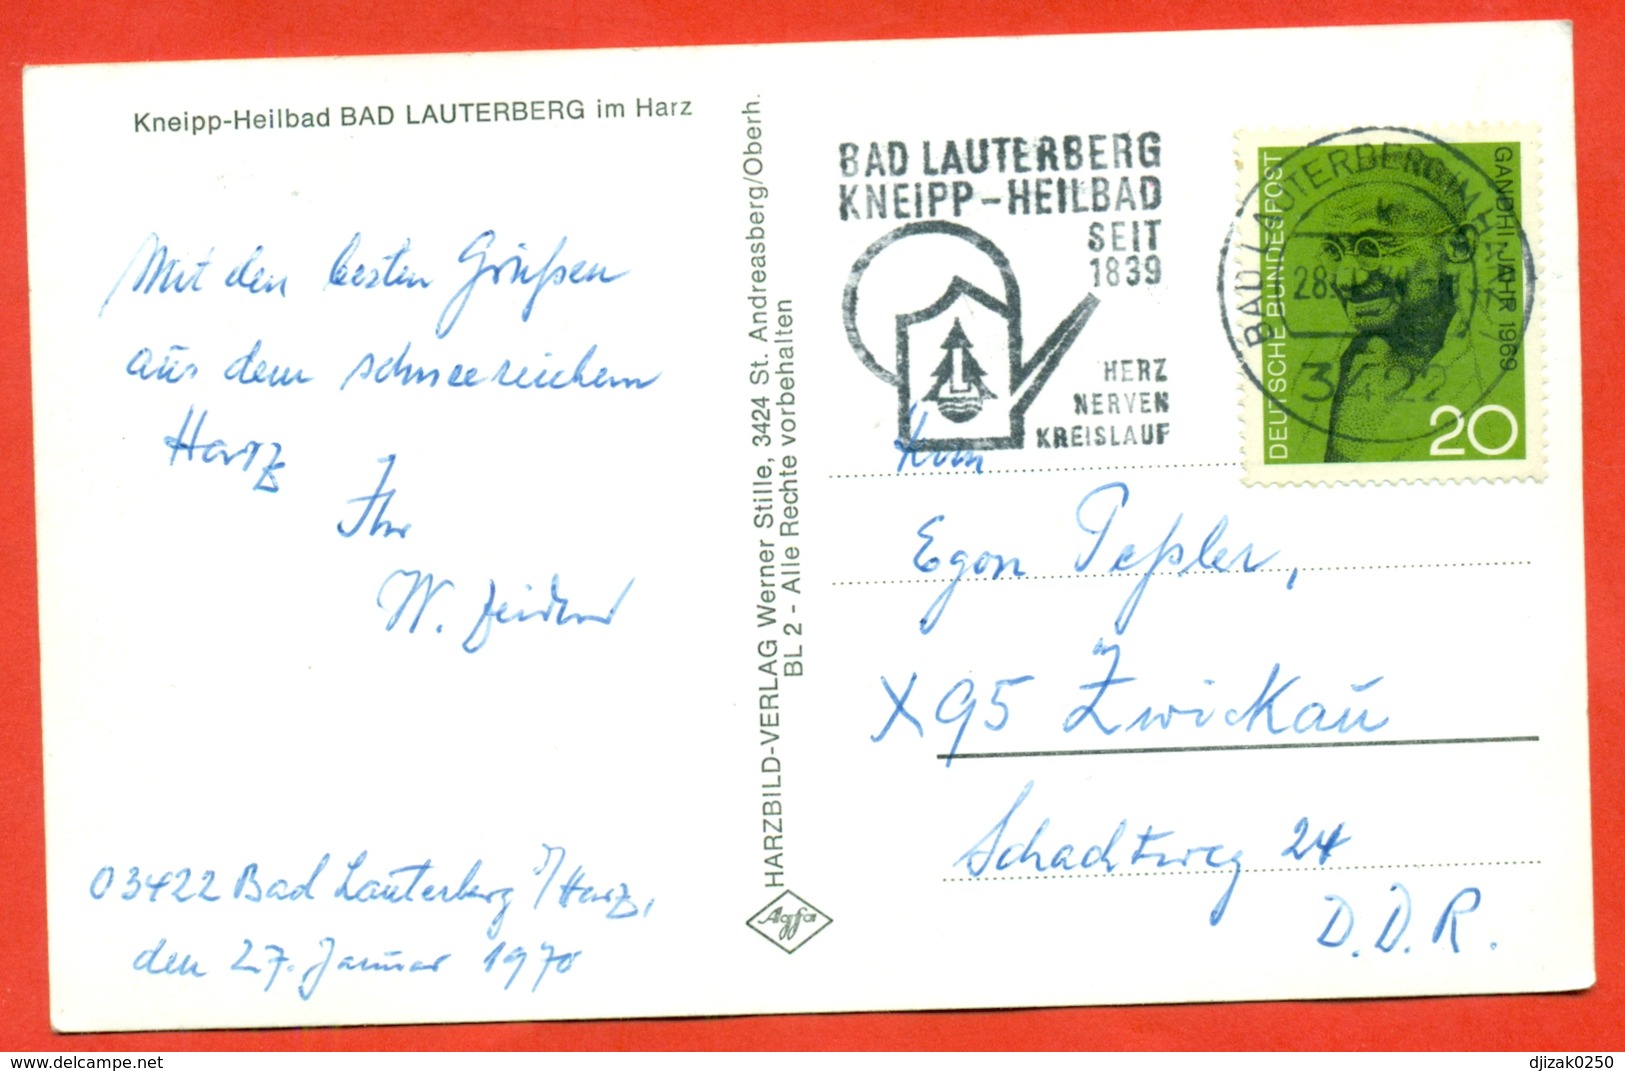 Kneipp-Heilbad BAD LAUTERBERG im Harz
Mit den besten Grüßen
aus dem schneereichem
Harz
Ihr
W.
03422 Bad Lauterberg i/Harz,
den 27. Januar 1970
HARZBILD-VERLAG Werner Stille, 3424 St. Andreasberg/Oberh.
BL 2 - Alle Rechte vorbehalten
Agfa
BAD LAUTERBERG
KNEIPP-HEILBAD
SEIT
1839
L
HERZ
NERVEN
KREISLAUF
BAD LAUTERBERG IM HARZ
3422
DEUTSCHE BUNDESPOST
GANDHI-JAHR 1969
20
Egon Peßler,
X95 Zwickau
Schachtweg 24
D.D.R.
www.delcampe.net
djizak0250